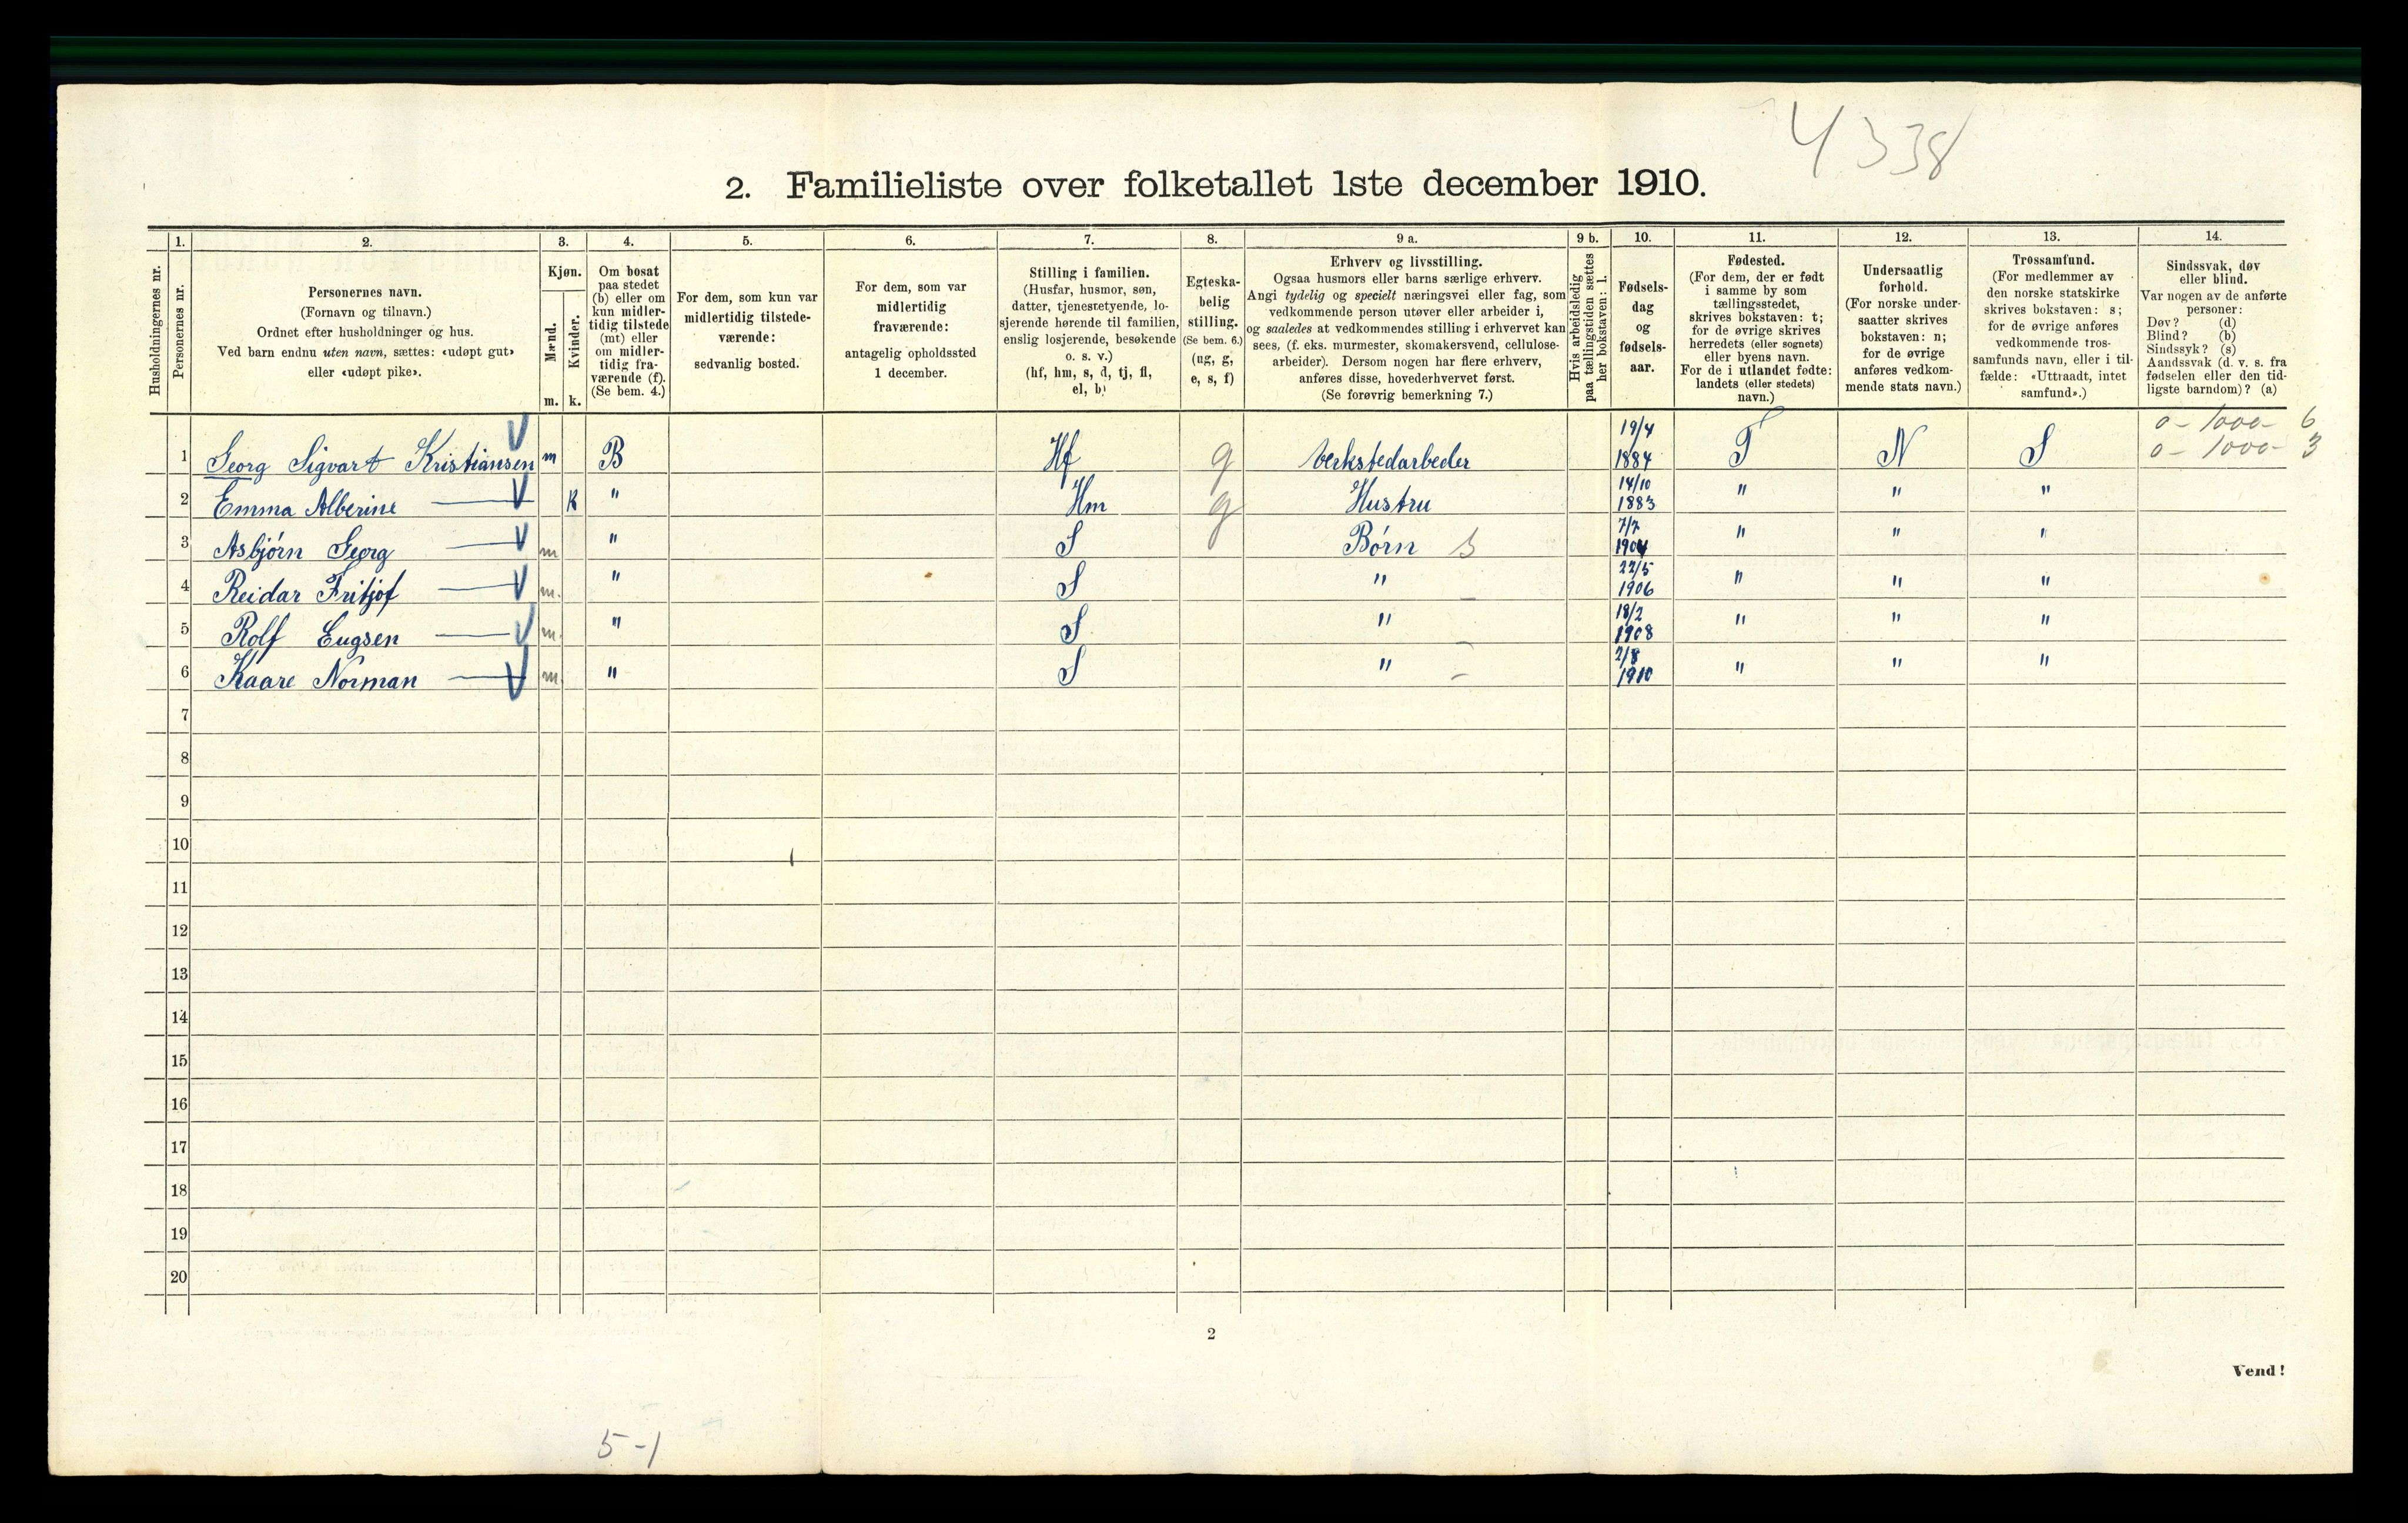 4338
2. Familieliste over folketallet 1ste december 1910.
Husholdningernes nr.
1. 2. 3. 4. 5. 6. 7. 8. 9 a. 9 b. 10. 11. 12. 13. 14.
Personernes nr.
Personernes navn.
(Fornavn og tilnavn.)
Ordnet efter husholdninger og hus.
Ved barn endnu uten navn, sættes: «udøpt gut»
eller «udøpt pike».
Kjøn.
Mænd.
Kvinder.
m. k.
Om bosat
paa stedet
(b) eller om
kun midler-
tidig tilstede
(mt) eller
om midler-
tidig fra-
værende (f).
(Se bem. 4.)
For dem, som kun var
midlertidig tilstede-
værende:
sedvanlig bosted.
For dem, som var
midlertidig
fraværende:
antagelig opholdssted
1 december.
Stilling i familien.
(Husfar, husmor, søn,
datter, tjenestetyende, lo-
sjerende hørende til familien,
enslig losjerende, besøkende
o. s. v.)
(hf, hm, s, d, tj, fl,
el, b)
Egteska-
belig
stilling.
(Se bem. 6.)
(ug, g,
e, s, f)
Erhverv og livsstilling.
Ogsaa husmors eller barns særlige erhverv.
Angi tydelig og specielt næringsvei eller fag, som
vedkommende person utøver eller arbeider i,
og saaledes at vedkommendes stilling i erhvervet kan
sees, (f. eks. murmester, skomakersvend, cellulose-
arbeider). Dersom nogen har flere erhverv,
anføres disse, hovederhvervet først.
(Se forøvrig bemerkning 7.)
Hvis arbeidsledig
paa tællingstiden sættes
her bokstaven: l.
Fødsels-
dag
og
fødsels-
aar.
Fødested.
(For dem, der er født
i samme by som
tællingsstedet,
skrives bokstaven: t;
for de øvrige skrives
herredets (eller sognets)
eller byens navn.
For de i utlandet fødte:
landets (eller stedets)
navn.)
Undersaatlig
forhold.
(For norske under-
saatter skrives
bokstaven: n;
for de øvrige
anføres vedkom-
mende stats navn.)
Trossamfund.
(For medlemmer av
den norske statskirke
skrives bokstaven: s;
for de øvrige anføres
vedkommende tros-
samfunds navn, eller i til-
fælde: «Uttraadt, intet
samfund».)
Sindssvak, døv
eller blind.
Var nogen av de anførte
personer:
Døv? (d)
Blind? (b)
Sindssyk? (s)
Aandssvak (d. v. s. fra
fødselen eller den tid-
ligste barndom)? (a)
0 - 1000 - 6
0 - 1000 - 3
1 Georg Sigvart Kristiansen m B Hf g Verkstedarbeder 19/4 1884 T N S
2 Emma Alberine — k " Hm g Hustru 14/10 1883 " " "
3 Asbjörn Georg — m " S Börn s 7/7 1904 " " "
4 Reidar Fritjof — m. " S " - 22/5 1906 " " "
5 Rolf Eugsen — m. " S " - 18/2 1908 " " "
6 Kaare Norman — m. " S " - 2/8 1910 " " "
7
8
9
10
11
12
13
14
15
16
17
18
19
20
2
Vend!
5-1